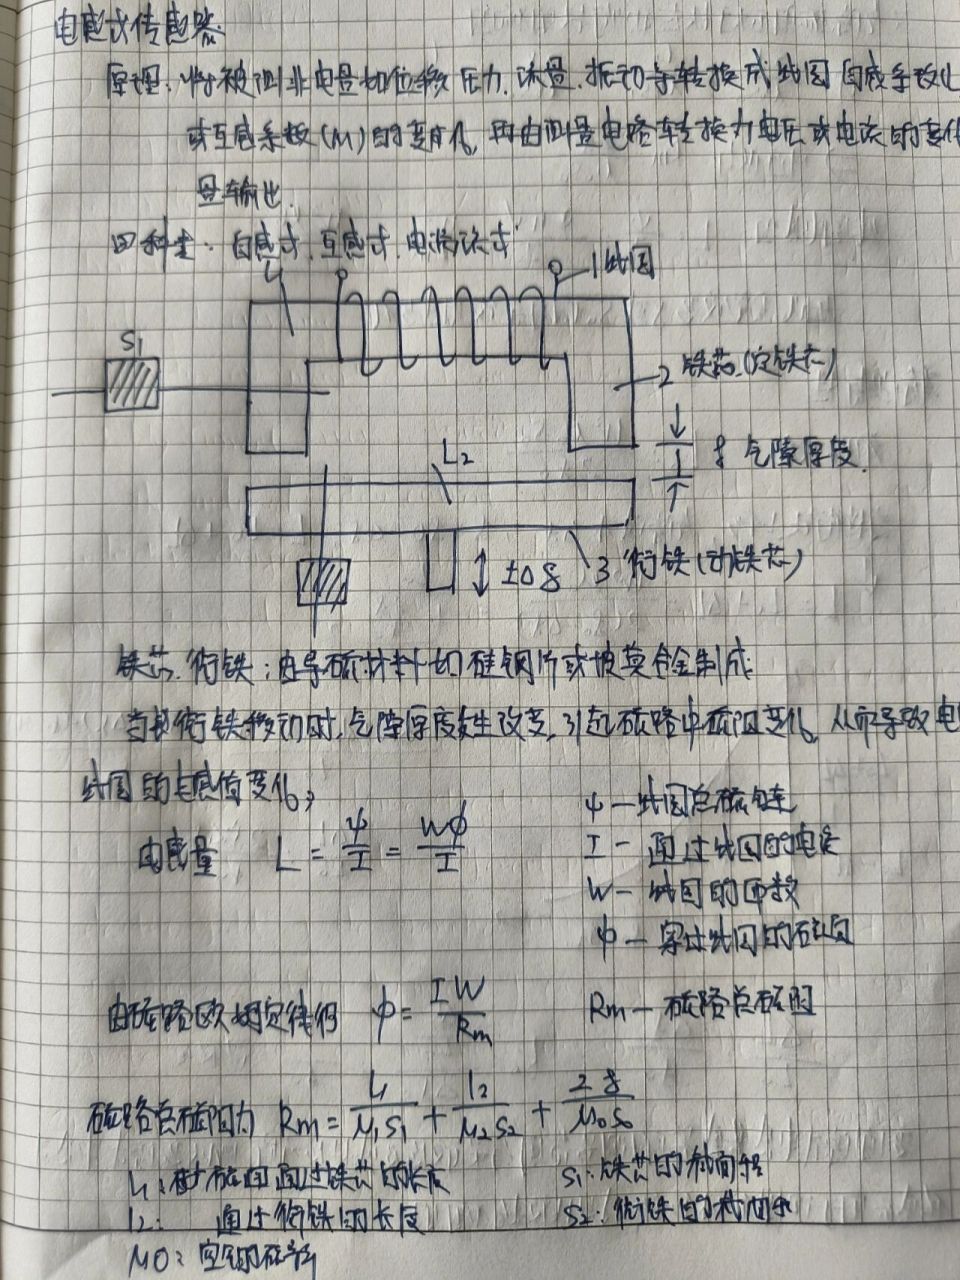 电感式传感器
原理：将被测非电量如位移.压力.流量.振动等转换成线圈自感系数
或互感系数(M)的变化,再由测量电路转换为电压或电流的变化
量输出.
四种类：自感式.互感式.电涡流式
L1
1线圈
S1
2 铁芯.(定铁芯)
L2
δ 气隙厚度.
±Δδ
3 衔铁(动铁芯)
铁芯.衔铁：由导磁材料如硅钢片或坡莫合金制成.
当衔铁移动时,气隙厚度发生改变,引起磁路中磁阻变化,从而导致电
线圈的电感值变化;
电感量 L = ψ/I = Wϕ/I
ψ—线圈总磁链
I—通过线圈的电流
W—线圈的匝数
ϕ—穿过线圈的磁通
由磁路欧姆定律得 ϕ= IW/Rm
Rm—磁路总磁阻
磁路总磁阻为 Rm= l1/μ1S1 + l2/μ2S2 + 2δ/μ0S0
l1：磁通通过铁芯的长度
S1：铁芯的截面积
l2： 通过衔铁的长度
S2：衔铁的截面积
μ0：空气的磁导